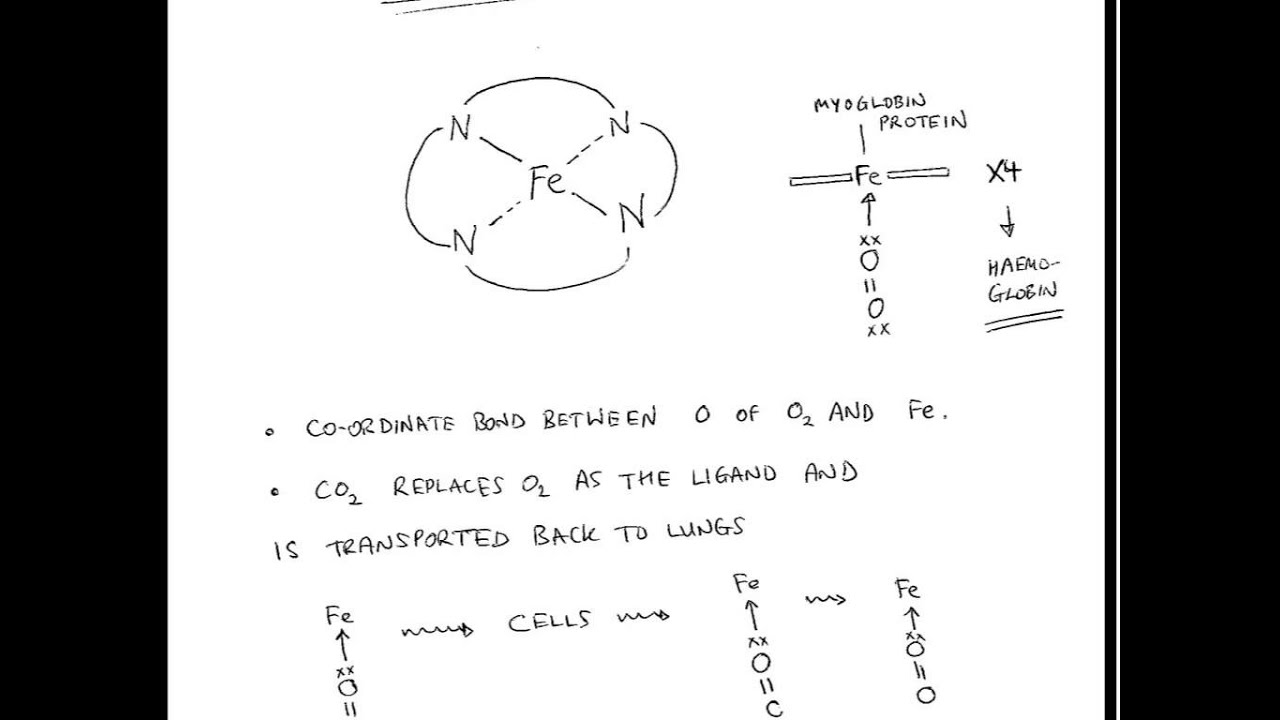 N N
Fe
N N
MYOGLOBIN
PROTEIN
Fe X4
xx
O
=
O
xx
HAEMO-
GLOBIN
• CO-ORDINATE BOND BETWEEN O OF O₂ AND Fe.
• CO₂ REPLACES O₂ AS THE LIGAND AND
IS TRANSPORTED BACK TO LUNGS
Fe CELLS Fe Fe
xx xx xx
O O O
= = =
C O